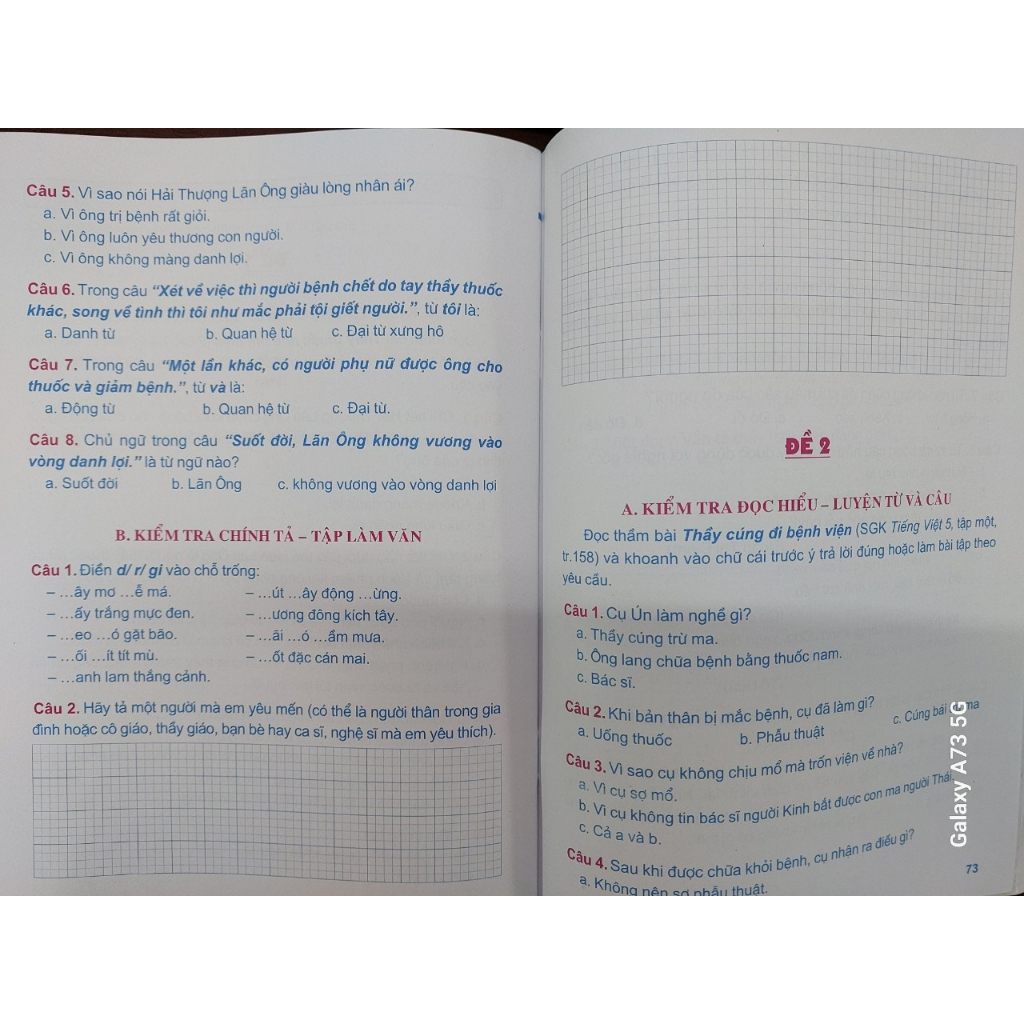 Câu 5. Vì sao nói Hải Thượng Lãn Ông giàu lòng nhân ái?
a. Vì ông trị bệnh rất giỏi.
b. Vì ông luôn yêu thương con người.
c. Vì ông không màng danh lợi.
Câu 6. Trong câu “Xét về việc thì người bệnh chết do tay thầy thuốc
khác, song về tình thì tôi như mắc phải tội giết người.”, từ tôi là:
a. Danh từ b. Quan hệ từ c. Đại từ xưng hô
Câu 7. Trong câu “Một lần khác, có người phụ nữ được ông cho
thuốc và giảm bệnh.”, từ và là:
a. Động từ b. Quan hệ từ c. Đại từ.
Câu 8. Chủ ngữ trong câu “Suốt đời, Lãn Ông không vương vào
vòng danh lợi.” là từ ngữ nào?
a. Suốt đời b. Lãn Ông c. không vương vào vòng danh lợi
B. KIỂM TRA CHÍNH TẢ – TẬP LÀM VĂN
Câu 1. Điền d/ r/ gi vào chỗ trống:
– …ây mơ …ễ má. – …út …ây động …ừng.
– …ấy trắng mực đen. – …ương đông kích tây.
– …eo …ó gặt bão. – …ãi …ó …ầm mưa.
– …ối …ít tít mù. – …ốt đặc cán mai.
– …anh lam thắng cảnh.
Câu 2. Hãy tả một người mà em yêu mến (có thể là người thân trong gia
đình hoặc cô giáo, thầy giáo, bạn bè hay ca sĩ, nghệ sĩ mà em yêu thích).
ĐỀ 2
A. KIỂM TRA ĐỌC HIỂU – LUYỆN TỪ VÀ CÂU
Đọc thầm bài Thầy cúng đi bệnh viện (SGK Tiếng Việt 5, tập một,
tr.158) và khoanh vào chữ cái trước ý trả lời đúng hoặc làm bài tập theo
yêu cầu.
Câu 1. Cụ Ún làm nghề gì?
a. Thầy cúng trừ ma.
b. Ông lang chữa bệnh bằng thuốc nam.
c. Bác sĩ.
Câu 2. Khi bản thân bị mắc bệnh, cụ đã làm gì?
a. Uống thuốc b. Phẫu thuật c. Cúng bái ma
Câu 3. Vì sao cụ không chịu mổ mà trốn viện về nhà?
a. Vì cụ sợ mổ.
b. Vì cụ không tin bác sĩ người Kinh bắt được con ma người Thái.
c. Cả a và b.
Câu 4. Sau khi được chữa khỏi bệnh, cụ nhận ra điều gì?
a. Không nên sợ phẫu thuật.
73
Galaxy A73 5G